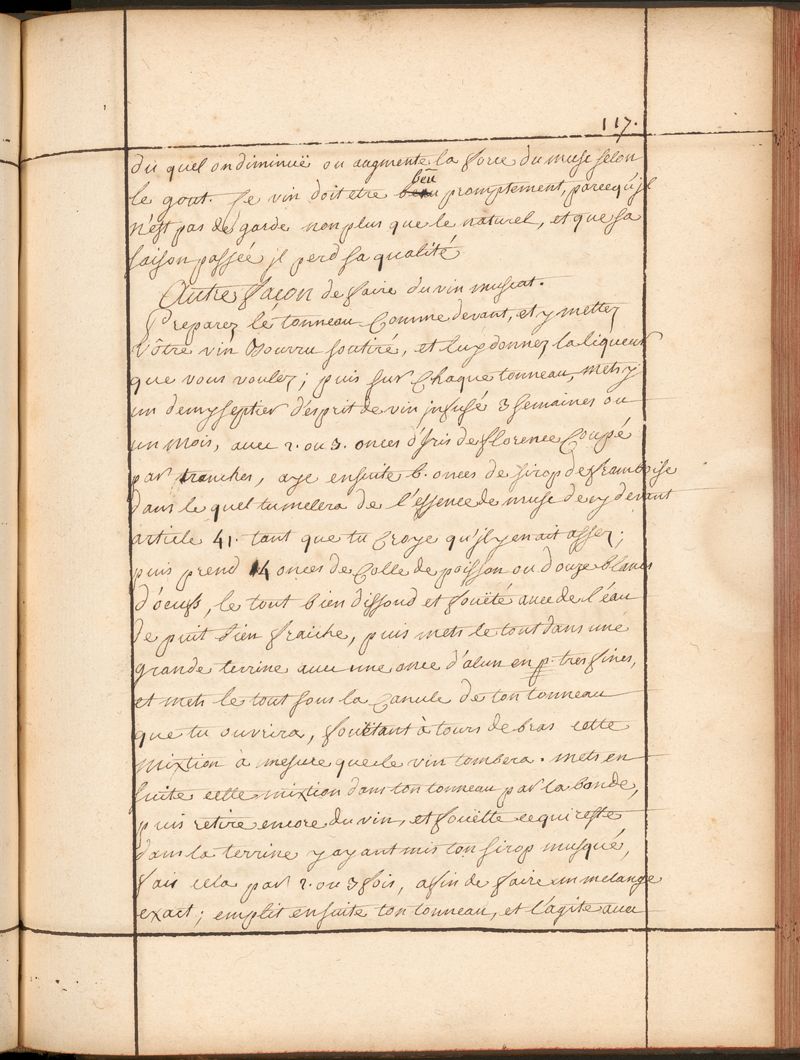 117.
du quel on diminuë ou augmente la force du musc selon
le gout. Ce vin doit etre bëu promptement, parcequ'jl
n'est pas de garde non plus que le naturel, et que sa
saison passée jl perd sa qualité
Autre façon de faire du vin muscat.
Preparez le tonneau Comme devant, et y mettez
vôtre vin Bourru soutiré, et luy donnez la liqueur
que vous voulez; puis sur Chaque tonneau, mets y
un demy septier d'esprit de vin jnfusé 3 semaines ou
un mois, avec 2. ou 3. onces d'Jris de florence Coupé
par tranches, aye ensuite 6. onces de sirop de framboise
dans le quel tu melera de l'essence de musc de cy devant
article 41. tant que tu Croye qu'jl y en ait assez;
puis prend 4 onces de Colle de poisson ou douze blancs
d'oeufs, le tout bien dissoud et fouëté avec de l'eau
de puit bien fraiche, puis mets le tout dans une
grande terrine avec une once d'alun en p. tres fines,
et mets le tout sous la Canule de ton tonneau
que tu ouvrira, fouëtant à tours de bras cette
mixtion à mesure que le vin tombera. mets en
suite cette mixtion dans ton tonneau par la bonde,
puis retire encore du vin, et fouëtte ce qui reste
dans la terrine y ayant mis ton sirop musqué,
fais cela par 2. ou 3 fois, afin de faire un melange
exact; emplit ensuite ton tonneau, et l'agite avec